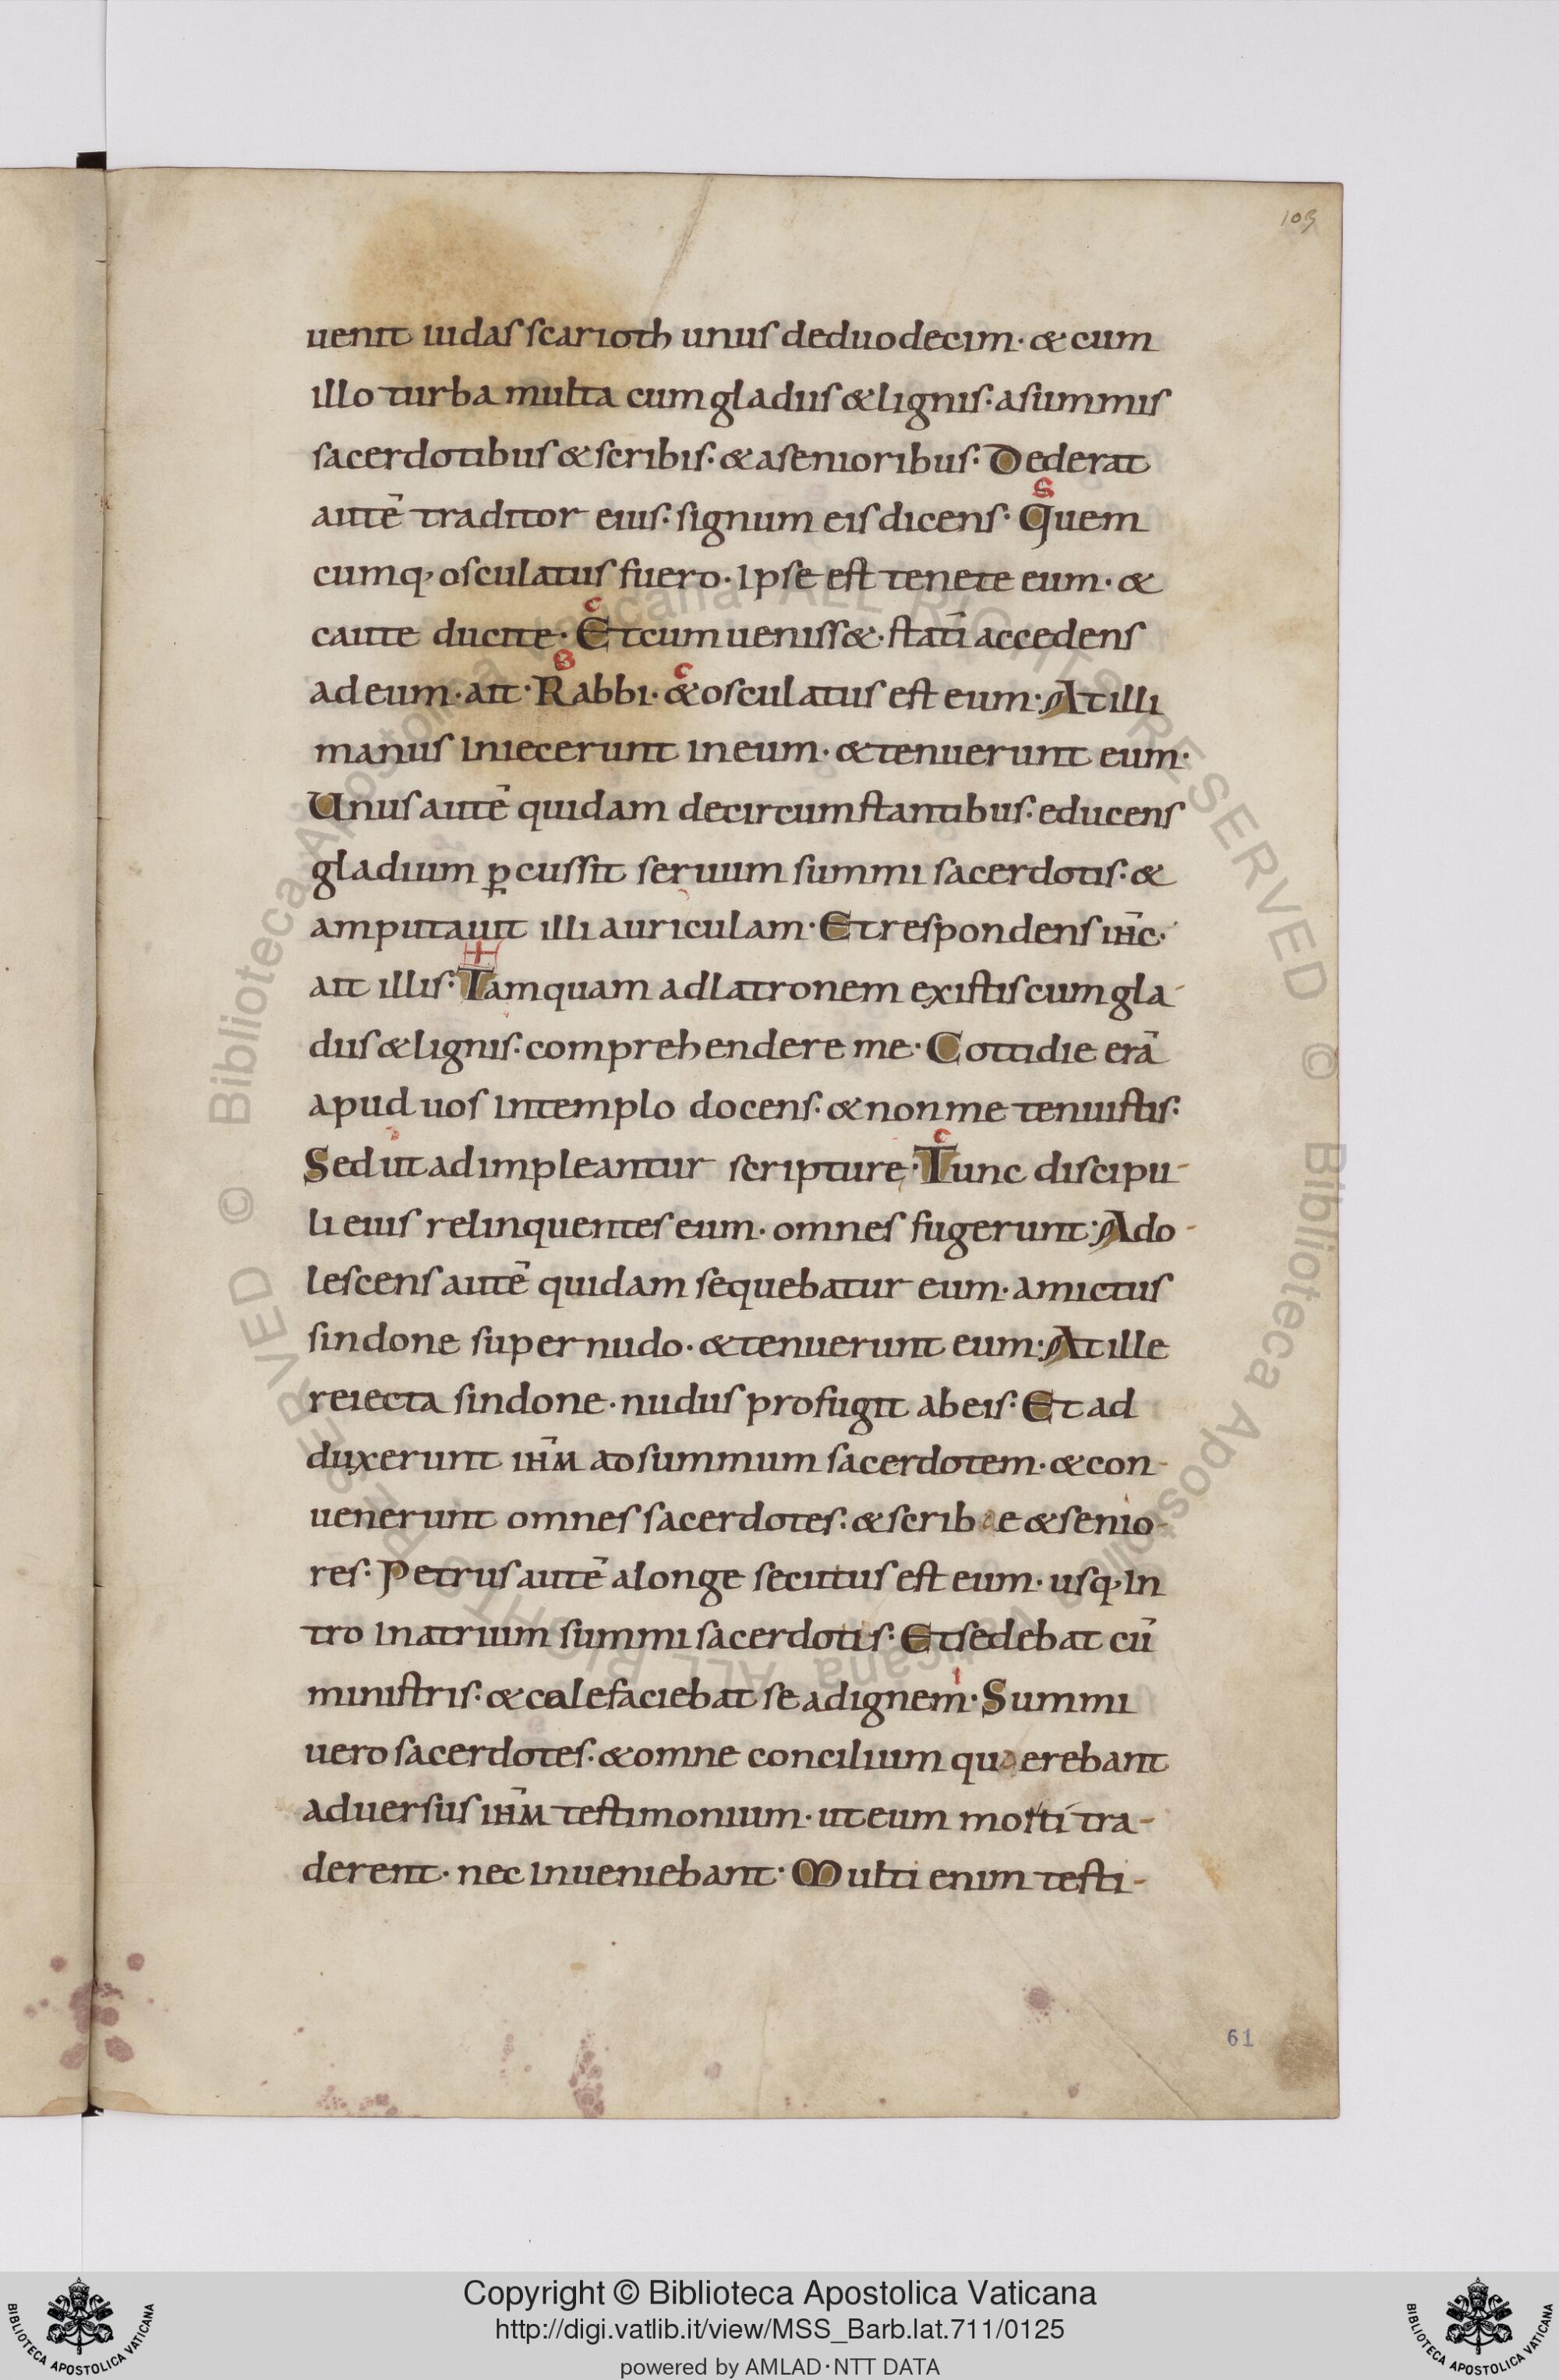 103
uenit iudas scarioth unus deduodecim· & cum
illo turba multa cum gladiis & lignis· asummis
sacerdotibus & scribis· & asenioribus· Dederat
autē traditor eius· signum eis dicens· Quem
cumq; osculatus fuero· Ipse est tenete eum· &
caute ducite· Et cum ueniss&· statī accedens
ad eum· ait· Rabbi· & osculatus est eum· At illi
manus iniecerunt in eum· & tenuerunt eum·
Unus autē quidam decircumstantibus· educens
gladium ꝑcussit seruum summi sacerdotis· &
amputauit illi auriculam· Et respondens ih̄c·
ait illis· Tamquam adlatronem existis cum gla-
diis & lignis· comprehendere me· Cottidie erā
apud uos intemplo docens· & non me tenuistis·
Sed ut adimpleantur scripturę· Tunc discipu-
li eius relinquentes eum· omnes fugerunt· Ado-
lescens autē quidam sequebatur eum· amictus
sindone super nudo· & tenuerunt eum· At ille
reiecta sindone· nudus profugit ab eis· Et ad
duxerunt ih̄m ad summum sacerdotem· & con-
uenerunt omnes sacerdotes· & scribae & senio-
res· Petrus autē alonge secutus est eum· usq; in
tro in atrium summi sacerdotis· Et sedebat cū
ministris· & calefaciebat se adignem· Summi
uero sacerdotes· & omne concilium quaerebant
aduersus ih̄m testimonium· ut eum morti tra-
derent· nec inueniebant· Multi enim testi-
61
Copyright © Biblioteca Apostolica Vaticana
http://digi.vatlib.it/view/MSS_Barb.lat.711/0125
powered by AMLAD·NTT DATA
BIBLIOTECA APOSTOLICA VATICANA
BIBLIOTECA APOSTOLICA VATICANA
© Biblioteca Apostolica Vaticana ALL RIGHTS RESERVED © Biblioteca Apostolica Vaticana ALL RIGHTS RESERVED